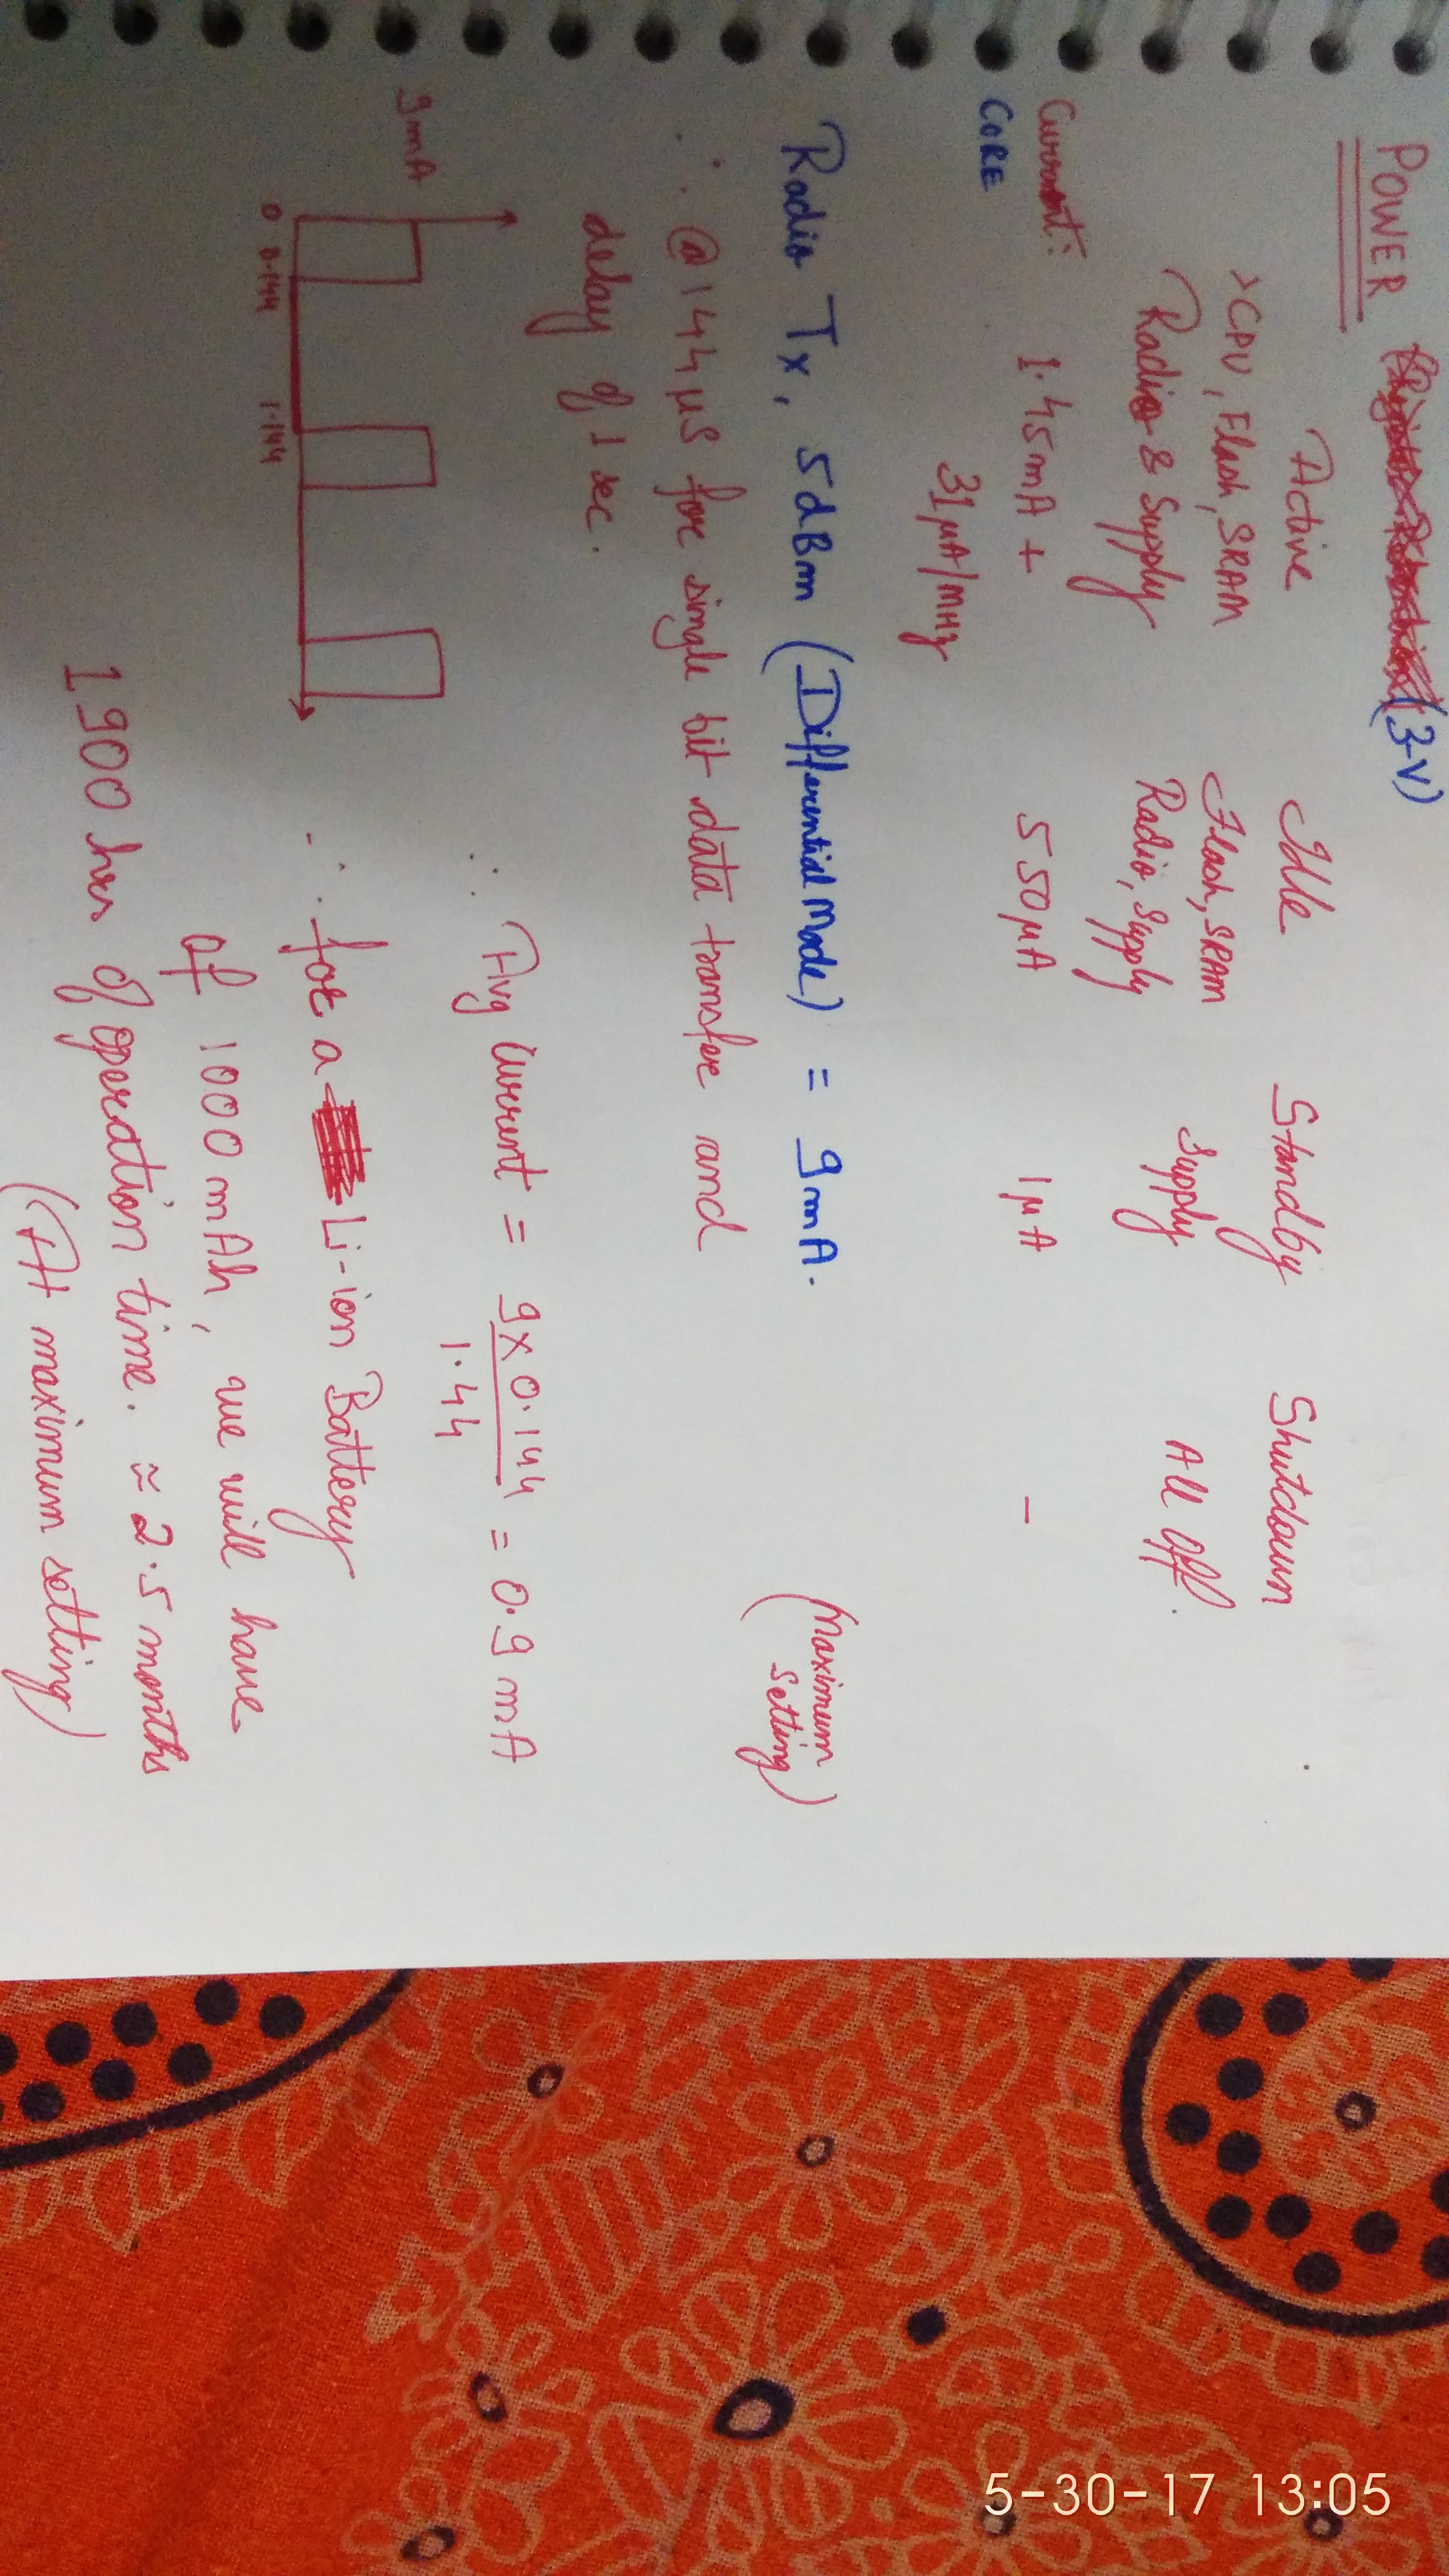 POWER (3-V)
Active Idle Standby Shutdown
>CPU, Flash, SRAM Flash, SRAM Supply All off.
Radio & Supply Radio, Supply
Current: 1.45mA + 550µA 1µA -
CORE 31µA/MHz
Radio Tx, 5dBm (Differential Mode) = 9mA. (Maximum
Setting)
∴ @144µs for single bit data transfer and
delay of 1 sec.
9mA
0 0.144 1.144
∴ Avg Current = 9×0.144 = 0.9 mA
1.44
∴ for a Li-ion Battery
of 1000 mAh, we will have
1900 hrs of operation time. ≈ 2.5 months
(At maximum setting)
5-30-17 13:05